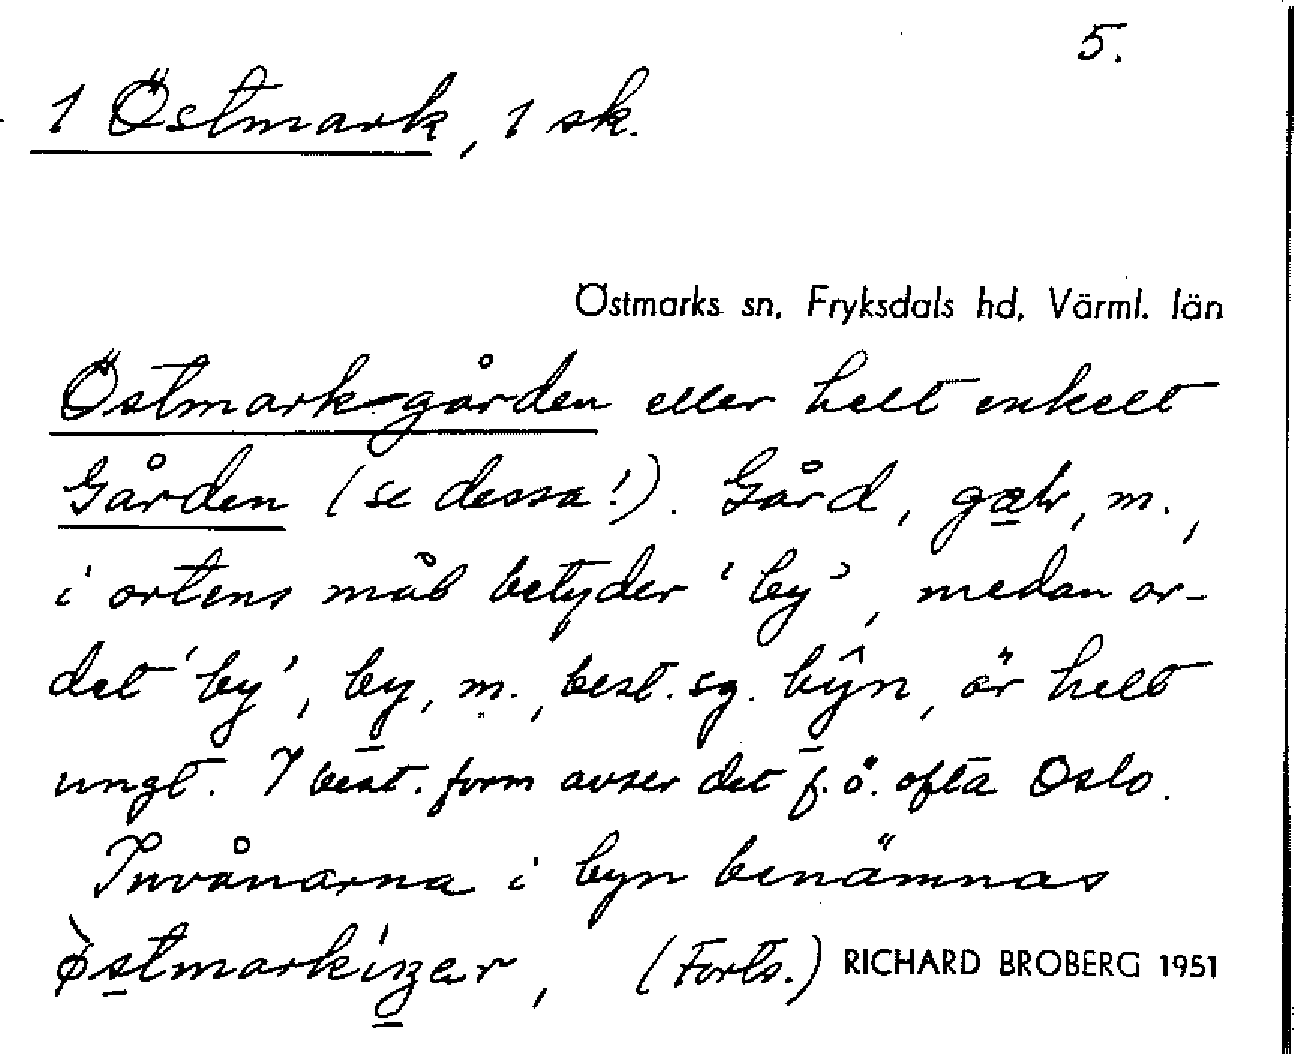 5.
1 Östmark, 1 sk.
Östmarks sn, Fryksdals hd, Värml. län
Östmark-gården eller helt enkelt
Gården (se dessa!). Gård, m.,
i ortens mål betyder 'by', medan or-
det 'by', by, m., best. sg. bŷn, är helt
ungt. I best. form avser det f.ö. ofta Oslo.
Invånarna i byn benämnas
(Forts.) RICHARD BROBERG 1951